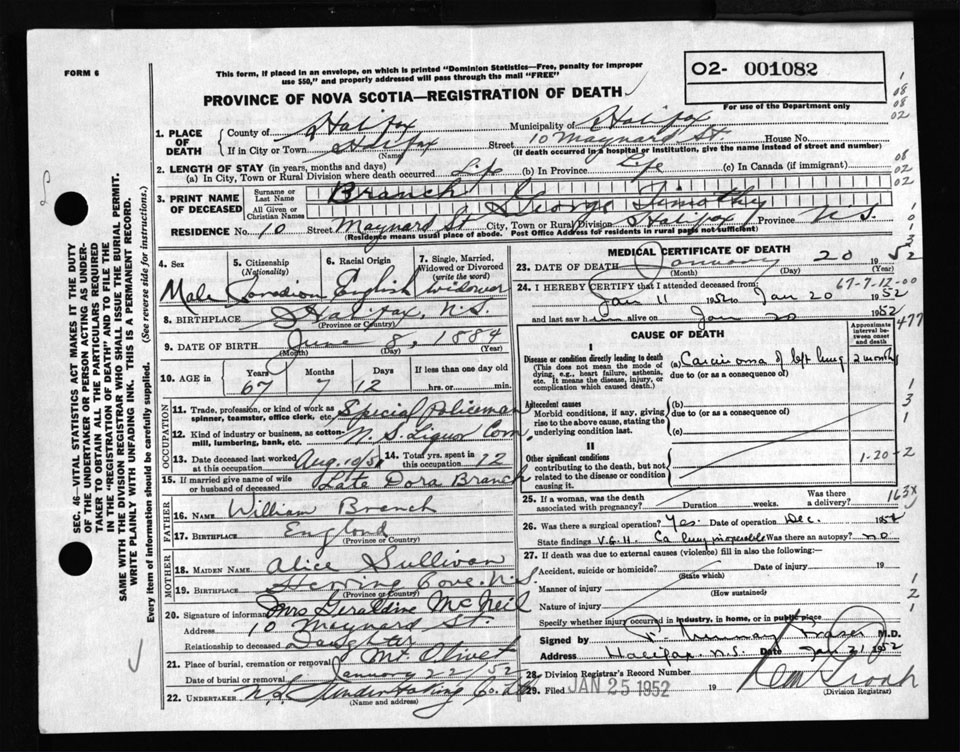 FORM 6
This form, if placed in an envelope, on which is printed "Dominion Statistics—Free, penalty for improper
use $50," and properly addressed will pass through the mail "FREE"
PROVINCE OF NOVA SCOTIA—REGISTRATION OF DEATH
02- 001082
For use of the Department only
1. PLACE OF DEATH
County of Halifax Municipality of Halifax
If in City or Town Halifax Street 10 Maynard St. House No.
(Name) (If death occurred in a hospital or institution, give the name instead of street and number)
2. LENGTH OF STAY (in years, months and days)
(a) In City, Town or Rural Division where death occurred Life (b) In Province Life (c) In Canada (if immigrant)
3. PRINT NAME OF DECEASED
Surname or Last Name Branch
All Given or Christian Names George Timothy
RESIDENCE No. 10 Street Maynard St City, Town or Rural Division Halifax Province N.S.
(Residence means usual place of abode. Post Office Address for residents in rural parts not sufficient)
4. Sex
5. Citizenship (Nationality)
6. Racial Origin
7. Single, Married, Widowed or Divorced (write the word)
Male Canadian English widower
8. BIRTHPLACE Halifax, N.S.
(Province or Country)
9. DATE OF BIRTH June 8, 1884
(Month) (Day) (Year)
10. AGE in Years Months Days If less than one day old
67 7 12 hrs. or min.
OCCUPATION
11. Trade, profession, or kind of work as spinner, teamster, office clerk, etc. Special Policeman
12. Kind of industry or business, as cotton-mill, lumbering, bank, etc. N.S. Liquor Com
13. Date deceased last worked at this occupation Aug. 10/51 14. Total yrs. spent in this occupation 12
15. If married give name of wife or husband of deceased Late Dora Branch
FATHER
16. NAME William Branch
17. BIRTHPLACE England
(Province or Country)
MOTHER
18. MAIDEN NAME Alice Sullivan
19. BIRTHPLACE Herring Cove. N.S.
(Province or Country)
20. Signature of informant Mrs Geraldine McNeil
Address 10 Maynard St.
Relationship to deceased Daughter
21. Place of burial, cremation or removal Mt. Olivet
Date of burial or removal January 22/52
22. UNDERTAKER N.S. Undertaking Co.
(Name and address)
MEDICAL CERTIFICATE OF DEATH
23. DATE OF DEATH January 20 1952
(Month) (Day) (Year)
67-7-12-00
24. I HEREBY CERTIFY that I attended deceased from:
Jan 11 1952 to Jan 20 1952
and last saw him alive on Jan 20 1952
477
CAUSE OF DEATH
Approximate interval between onset and death
I
Disease or condition directly leading to death
(This does not mean the mode of dying, e.g., heart failure, asthenia, etc. It means the disease, injury, or complication which caused death.)
(a) Carcinoma of left lung 2 months
due to (or as a consequence of)
Antecedent causes
Morbid conditions, if any, giving rise to the above cause, stating the underlying condition last.
(b)
due to (or as a consequence of)
(c)
II
Other significant conditions
contributing to the death, but not related to the disease or condition causing it.
1-20-2
25. If a woman, was the death associated with pregnancy? Duration weeks. Was there a delivery?
163X
26. Was there surgical operation? Yes. Date of operation Dec.
State findings V.G.H. Ca lung inoperable Was there an autopsy? no
27. If death was due to external causes (violence) fill in also the following:
Accident, suicide or homicide? Date of injury 19
(State which)
Manner of injury
(How sustained)
Nature of injury
Specify whether injury occurred in industry, in home, or in public place
Signed by M.D.
Address Halifax. N.S. Date Jan 21 1952
28. Division Registrar's Record Number
29. Filed JAN 25 1952 19
(Division Registrar)
SEC. 46—VITAL STATISTICS ACT MAKES IT THE DUTY
OF THE UNDERTAKER OR PERSON ACTING AS UNDER-
TAKER TO OBTAIN ALL THE PARTICULARS REQUIRED
IN THE "REGISTRATION OF DEATH" AND TO FILE THE
SAME WITH THE DIVISION REGISTRAR WHO SHALL ISSUE THE BURIAL PERMIT.
WRITE PLAINLY WITH UNFADING INK. THIS IS A PERMANENT RECORD.
Every item of information should be carefully supplied. (See reverse side for instructions.)